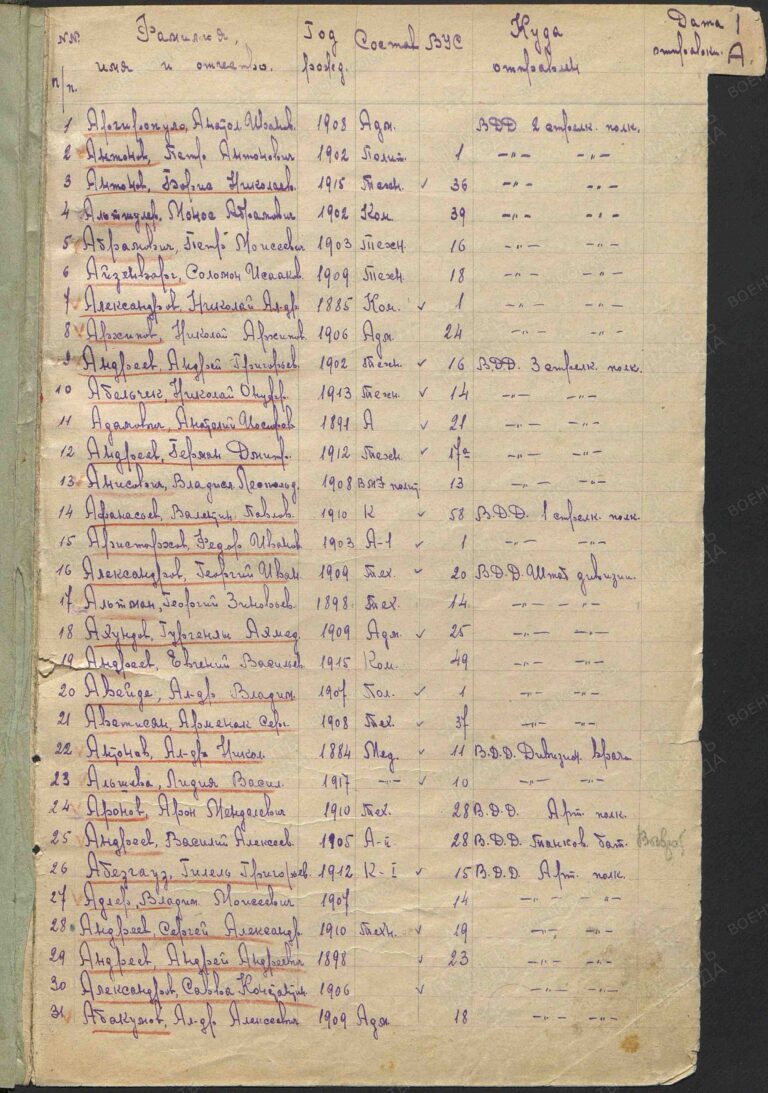 №№ Фамилия, Год Состав ВУС Куда Дата 1
п/п. имя и отчество. рожд. отправлен отправки. А.
1 Аргиропуло, Анатол Иванов. 1908 Адм. ВДД 2 стрелк. полк.
2 Антонов, Петр Антонович 1902 Полит. 1 —„— —„—
3 Антонов, Борис Николаев. 1915 Техн. ✓ 36 —„— —„—
4 Альтшулер, Моисе Абрамович 1902 Ком. 39 —„— —„—
5 Абрамович, Петр Моисеевич 1903 Техн. 16 —„— —„—
6 Айзенварг, Соломон Исааков. 1909 Техн. 18 —„— —„—
7 Александров, Николай Ал-др. 1885 Ком. ✓ 1 —„— —„—
8 Архипов, Николай Архипов. 1906 Адм. 24 —„— —„—
9 Андреев, Андрей Григорьев. 1902 Техн. ✓ 16 ВДД. 3 стрелк. полк.
10 Абельчек, Николай Онуфр. 1913 Техн. ✓ 14 —„— —„—
11 Адамович, Анатолий Иосифов 1891 А ✓ 21 —„— —„—
12 Андреев, Герман Дмитр. 1912 Техн. ✓ 17а —„— —„—
13 Анисович, Владисл Леопольд. 1908 полит 13 —„— —„—
14 Афанасьев, Валентин Павлов. 1910 К ✓ 58 В.Д.Д. 1 стрелк. полк.
15 Аристархов, Федор Иванов 1903 А-1 ✓ 1 —„— —„—
16 Александров, Георгий Иван. 1909 Тех. ✓ 20 В.Д.Д. Штаб дивизии.
17 Альтман, Георгий Зиновьев. 1898 Тех. 14 —„— —„—
18 Ахундов, Гургенли Ахмед 1909 Адм. ✓ 25 —„— —„—
19 Андреев, Евгений Васильев. 1915 Ком. 49 —„— —„—
20 Авейде, Ал-др Владим 1907 Пол. ✓ 1 —„— —„—
21 Аветисян, Арменак Серг. 1908 Тех. ✓ 37 —„— —„—
22 Антонов, Ал-др Никол. 1884 Мед. ✓ 11 В.Д.Д. Дивизион. врача
23 Альшева, Лидия Васил. 1917 —„— ✓ 10 —„— —„—
24 Аронов, Арон Менделевич 1910 Тех. 28 В.Д.Д. Арт. полк.
25 Андреев, Василий Алексеев. 1905 А-й 28 В.Д.Д. Танков. бат. Возвр.
26 Абезгауз, Гилель Григорьев. 1912 К-I ✓ 15 В.Д.Д. Арт. полк.
27 Адлер, Владим Моисеевич 1907 14 —„— —„—
28 Андреев, Сергей Александр. 1910 Техн. ✓ 19 —„— —„—
29 Андреев, Андрей Андреевич 1898 ✓ 23 —„— —„—
30 Александров, Савва Константин. 1906 ✓ —„— —„—
31 Абакумов, Ал-др Алексеевич 1909 Адм 18 —„— —„—